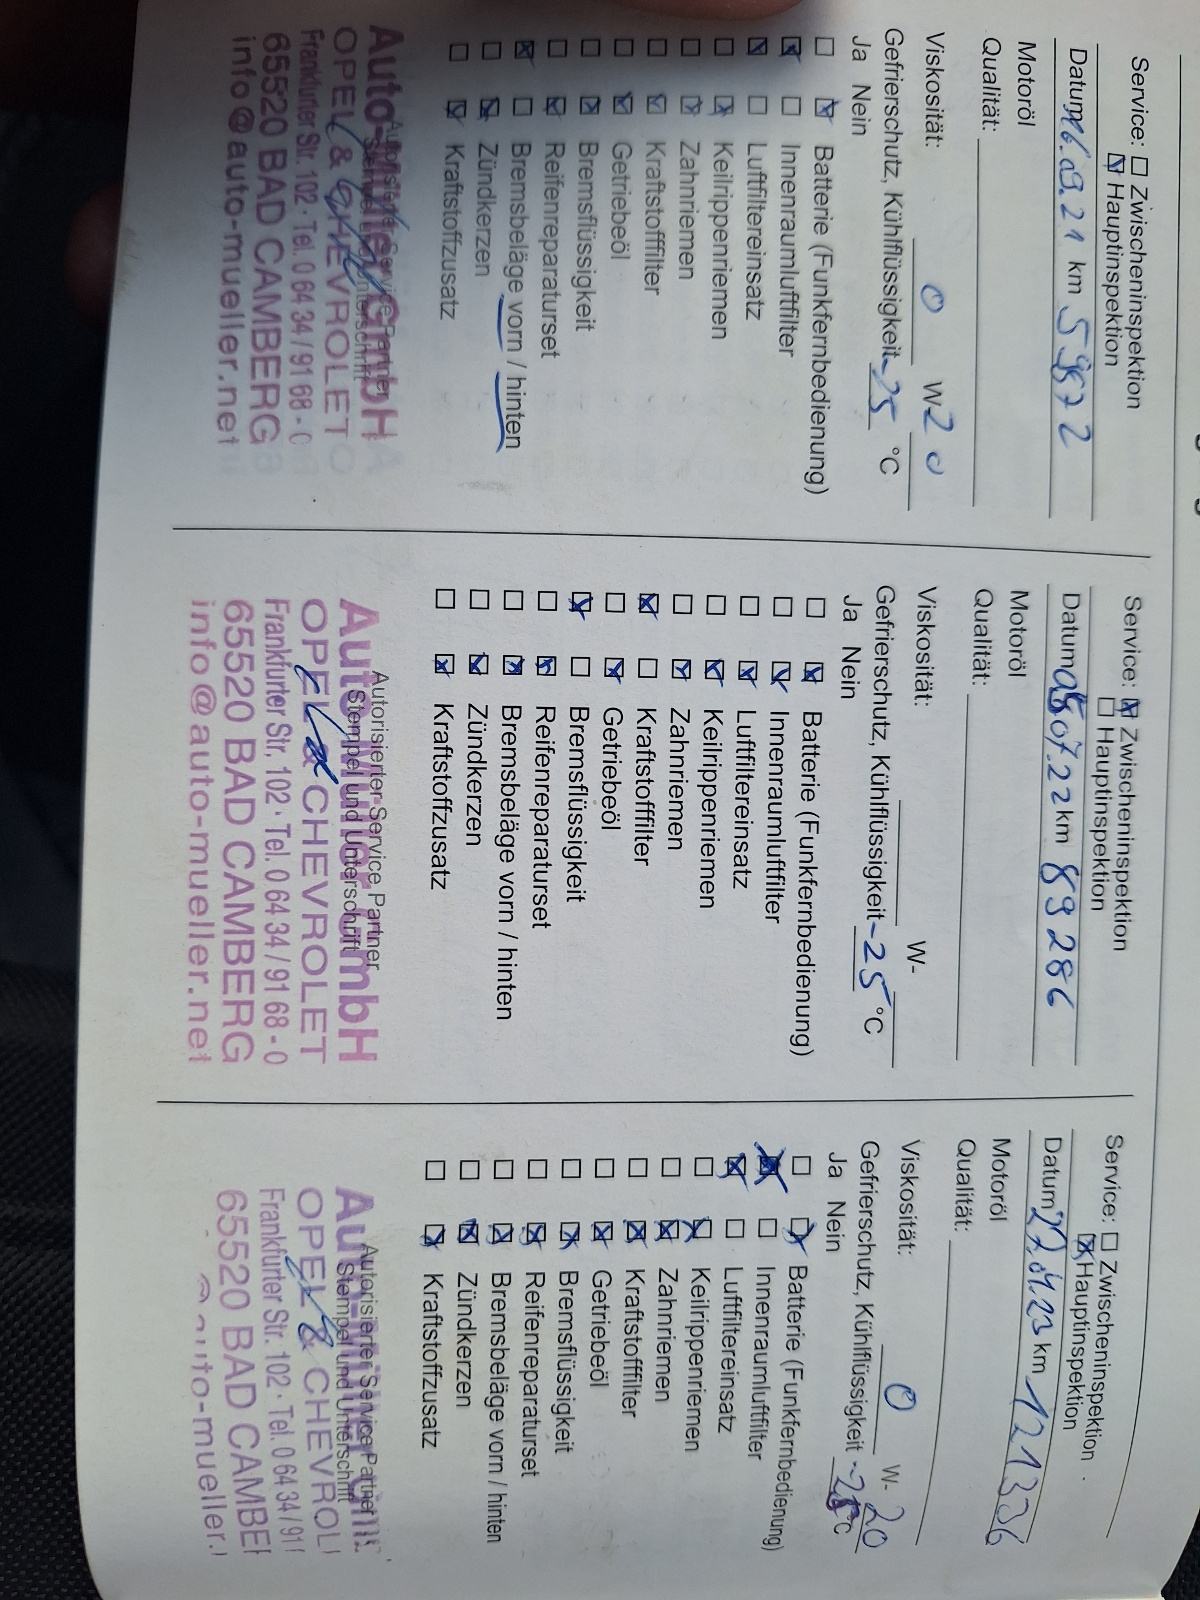 Service: ☐ Zwischeninspektion
☒ Hauptinspektion
Datum 16.09.21 km 59872
Motoröl
Qualität:
Viskosität: 0 W 20
Gefrierschutz, Kühlflüssigkeit -25 °C
Ja Nein
☐ ☒ Batterie (Funkfernbedienung)
☒ ☐ Innenraumluftfilter
☒ ☐ Luftfiltereinsatz
☐ ☒ Keilrippenriemen
☐ ☒ Zahnriemen
☐ ☒ Kraftstofffilter
☐ ☒ Getriebeöl
☐ ☒ Bremsflüssigkeit
☐ ☒ Reifenreparaturset
☒ ☐ Bremsbeläge vorn / hinten
☐ ☒ Zündkerzen
☐ ☒ Kraftstoffzusatz
Autorisierter Service Partner
Auto GmbH
OPEL & CHEVROLET
Frankfurter Str. 102 · Tel. 0 64 34 / 91 68 - 0
65520 BAD CAMBERG
info@auto-mueller.net
Service: ☒ Zwischeninspektion
☐ Hauptinspektion
Datum 07.22 km 89286
Motoröl
Qualität:
Viskosität: W-
Gefrierschutz, Kühlflüssigkeit -25 °C
Ja Nein
☐ ☒ Batterie (Funkfernbedienung)
☐ ☒ Innenraumluftfilter
☐ ☒ Luftfiltereinsatz
☐ ☒ Keilrippenriemen
☐ ☒ Zahnriemen
☒ ☐ Kraftstofffilter
☐ ☒ Getriebeöl
☒ ☐ Bremsflüssigkeit
☐ ☒ Reifenreparaturset
☐ ☒ Bremsbeläge vorn / hinten
☐ ☒ Zündkerzen
☐ ☒ Kraftstoffzusatz
Autorisierter Service Partner
Stempel und Unterschrift
Auto Müller GmbH
OPEL & CHEVROLET
Frankfurter Str. 102 · Tel. 0 64 34 / 91 68 - 0
65520 BAD CAMBERG
info@auto-mueller.net
Service: ☐ Zwischeninspektion
☒ Hauptinspektion
Datum 27.04.23 km 121336
Motoröl
Qualität:
Viskosität: 0 W- 20
Gefrierschutz, Kühlflüssigkeit -25 °C
Ja Nein
☐ ☒ Batterie (Funkfernbedienung)
☒ ☐ Innenraumluftfilter
☒ ☐ Luftfiltereinsatz
☐ ☒ Keilrippenriemen
☐ ☒ Zahnriemen
☐ ☒ Kraftstofffilter
☐ ☒ Getriebeöl
☐ ☒ Bremsflüssigkeit
☐ ☒ Reifenreparaturset
☐ ☒ Bremsbeläge vorn / hinten
☐ ☒ Zündkerzen
☐ ☒ Kraftstoffzusatz
Autorisierter Service Partner
Stempel und Unterschrift
OPEL & CHEVROL
Frankfurter Str. 102 · Tel. 0 64 34 / 91
65520 BAD CAMBE
auto-mueller.